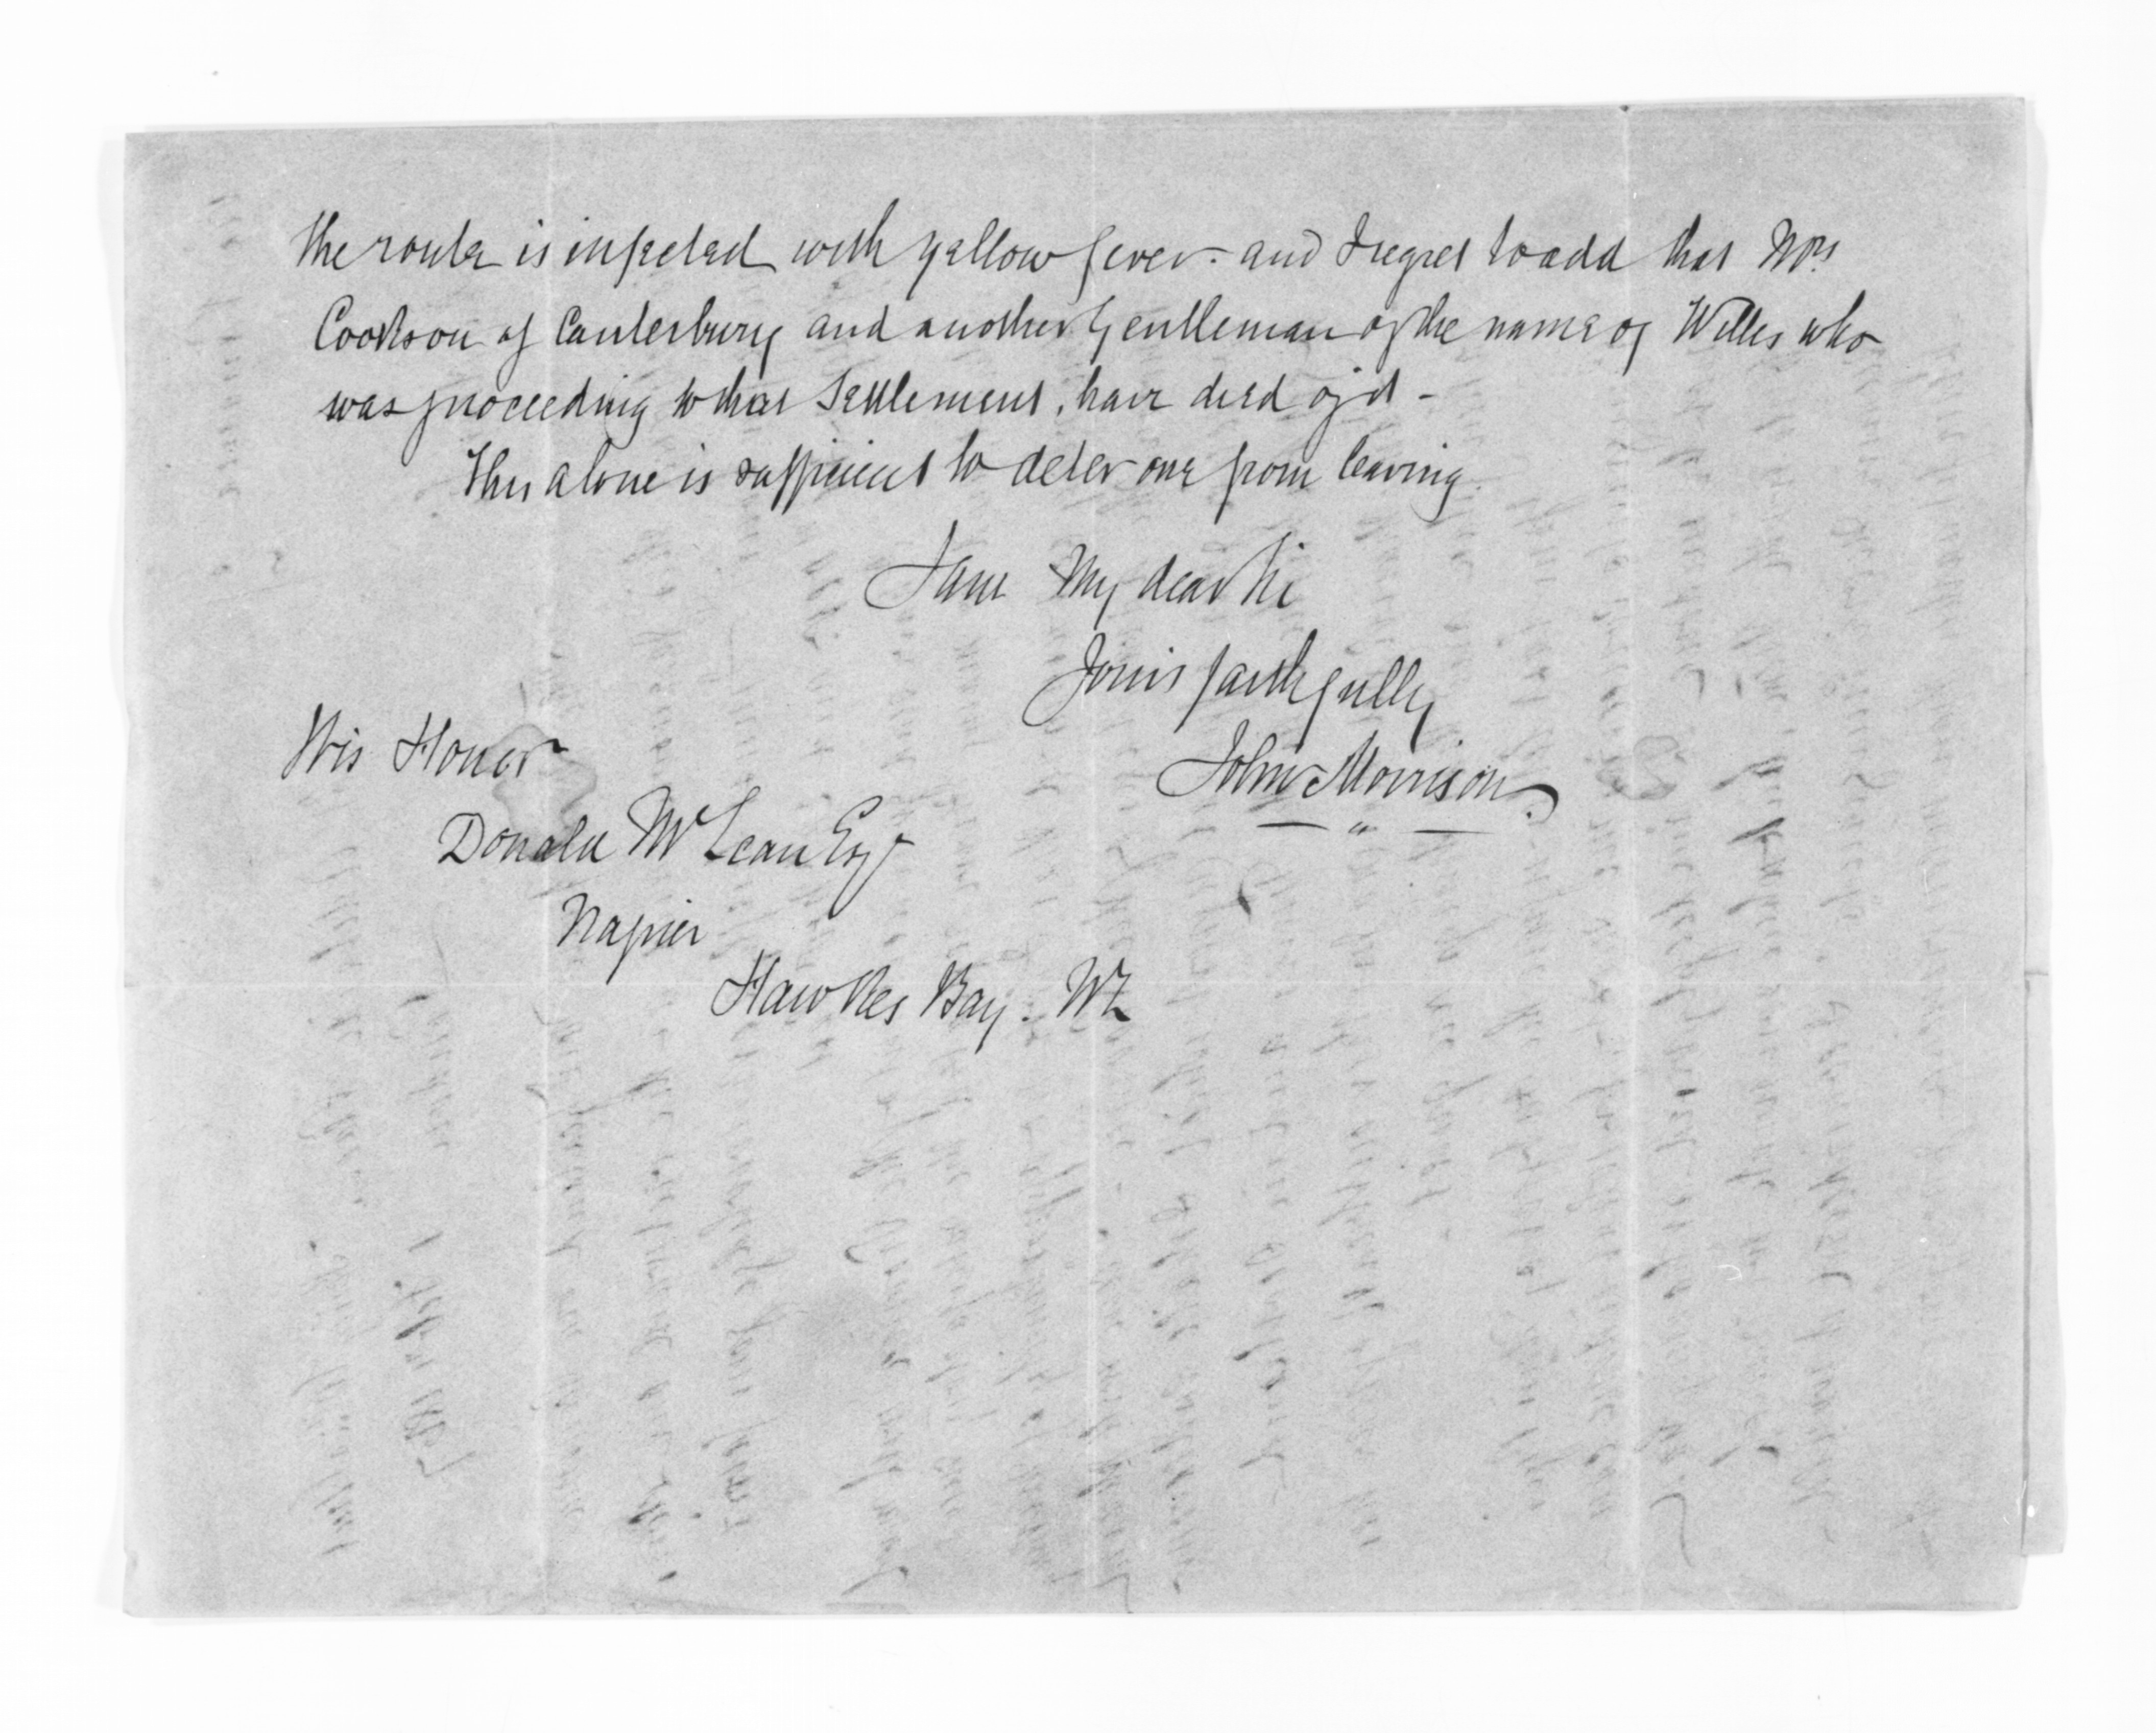 the route is infected with yellow fever - and I regret to add that Mrs
Cookson of Canterbury and another Gentleman of the name of Willes who
was proceeding to that Settlement, have died of it -
This alone is sufficient to deter one from leaving.
I am My dear Sir
Yours faithfully
John Morrison.
His Honor
Donald McLean Esqr
Napier
Hawkes Bay. NZ